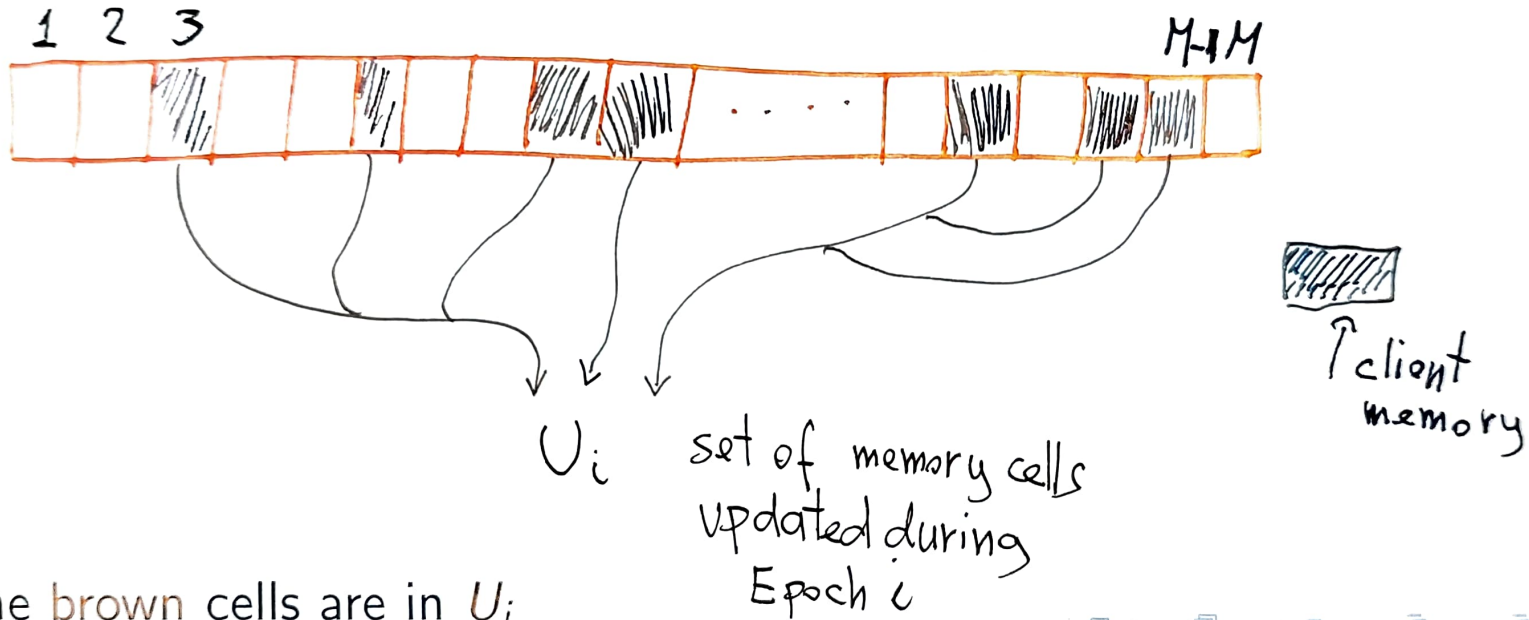 1 2 3 M-1 M
client
memory
Ui set of memory cells
updated during
Epoch i
e brown cells are in Ui